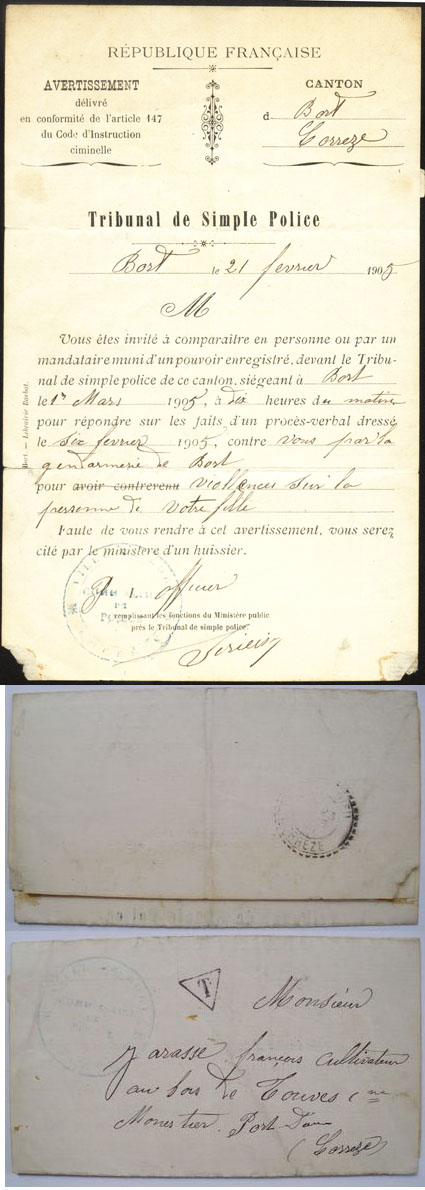 RÉPUBLIQUE FRANÇAISE
AVERTISSEMENT
délivré
en conformité de l'article 147
du Code d'Instruction
ciminelle
CANTON
d Bort
Correze
Tribunal de Simple Police
Bort le 21 fevrier 1905
M
Vous êtes invité à comparaître en personne ou par un
mandataire muni d'un pouvoir enregistré, devant le Tribu-
nal de simple police de ce canton, siégeant à Bort
le 1er Mars 1905, à dix heures du matin
pour répondre sur les faits d'un procès-verbal dressé
le six fevrier 1905, contre vous par la
gendarmerie de Bort
pour avoir contrevenu violences sur la
personne de votre fille
Faute de vous rendre à cet avertissement, vous serez
cité par le ministere d'un huissier.
officier
remplissant les fonctions du Ministère public
près le Tribunal de simple police
Bort. — Librairie
RREZE
T
Monsieur
françois cultivateur
au bois de Touves Cne
Monestier Port Dieu
(Correze)